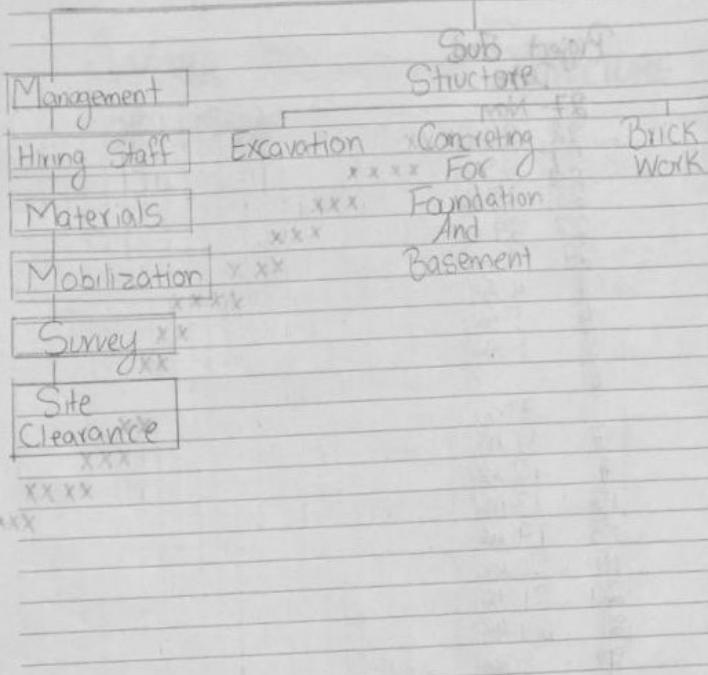 Sub
Structore
Management
Hiring Staff
Materials
Mobilization
Survey
Site
Clearance
Excavation
Concreting
For
Foundation
And
Basement
Brick
Work